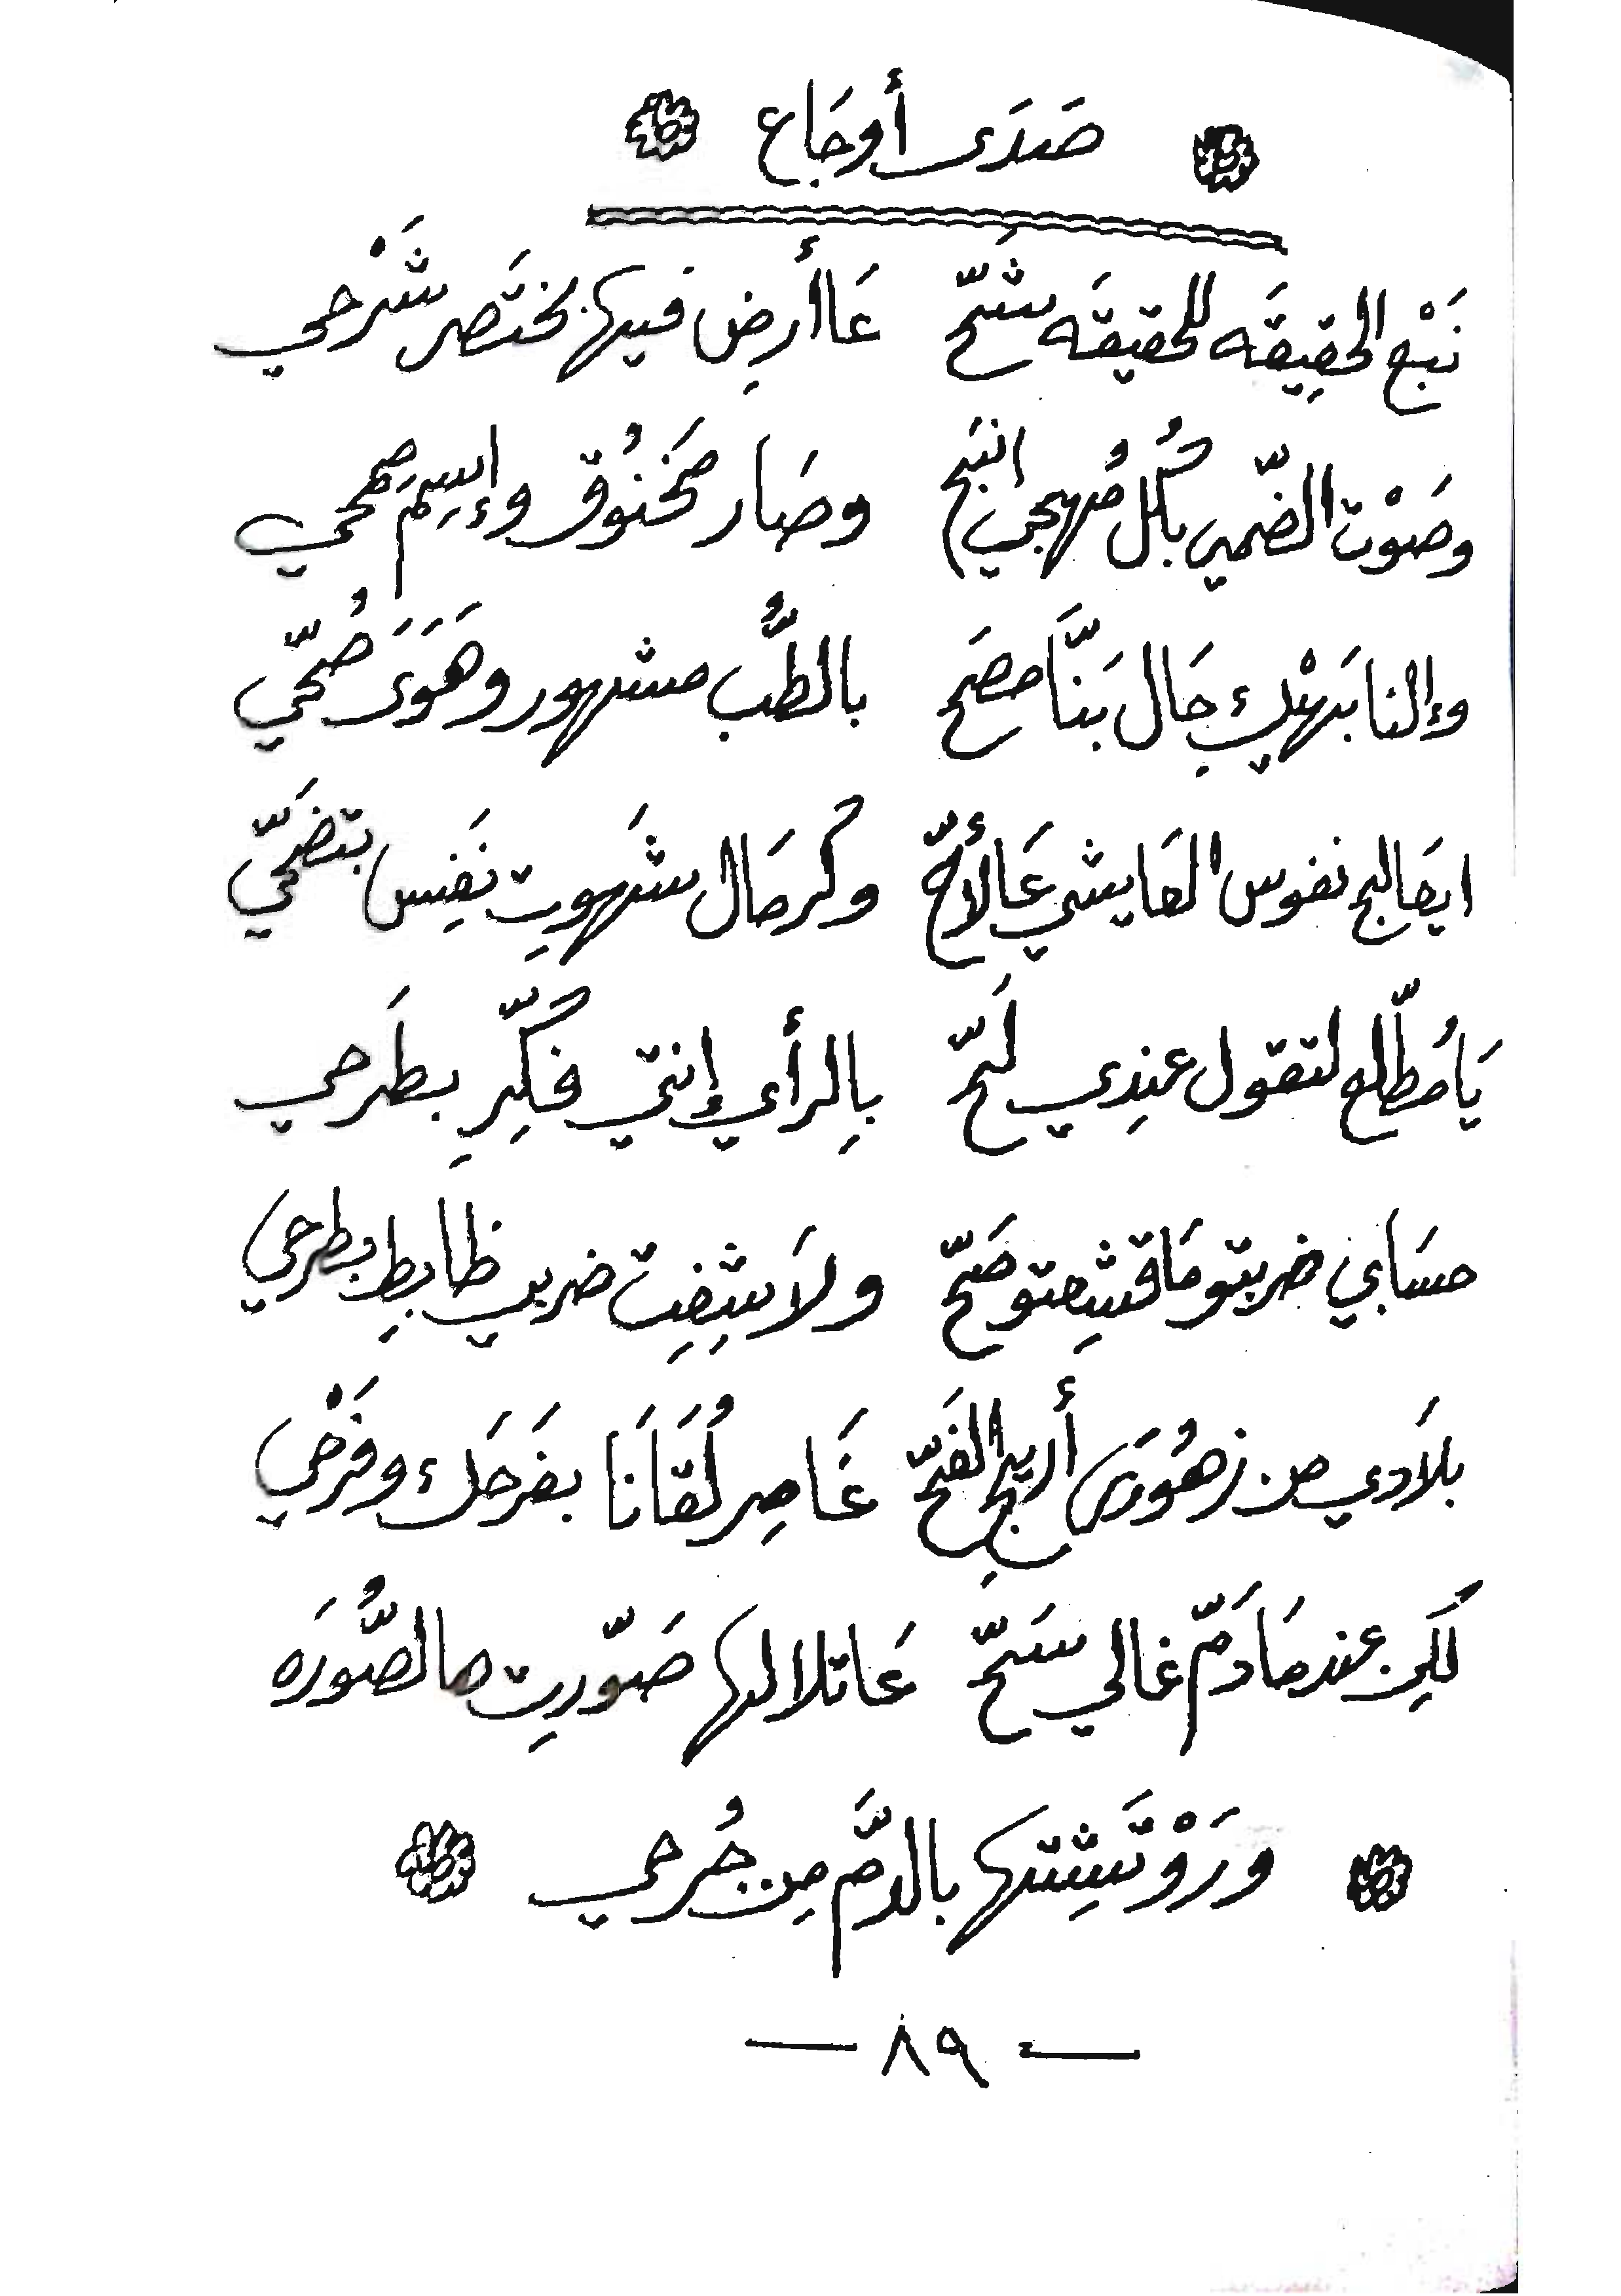 صَدَى أوجَاع
نَبْع الحقِيقَه للحقيقَه شَحّ عَا أرضِ فيها بختَصر شَرْحي
وصَوْت الضّمير بكُل مُهجي انبَح وصَار مَخنُوق وإسِم مَحي
وإلنا بَهْيكِ حَال بَنَّا مصَح بالطُّب مشهور وهَوَى صُحّي
ايعَالج نفوس العَايشي عَالأحّ وكُرمَال شَهوِت نَفِس بتضَحّي
يَا مُطّلع لتقول عندِي لَحّ بِالرأي إنتي فكِّر بطَرحي
حسَابي ضربتو مَا قشِعتو صَحّ ولاَ شِفِت ضربي ظابِط بطرحي
بلاَدي من زهُورَى أريج الفَحّ عَاصِر لُقَانَا بفَرحَك وفَرْحي
لكِن عندمَا دَمّ غالي سَحّ عَا تلالها صَوّرِت هالصُّورَه
ورَوْتَشِتها بالدَّم مِن جُرحي
— ٨٩ —